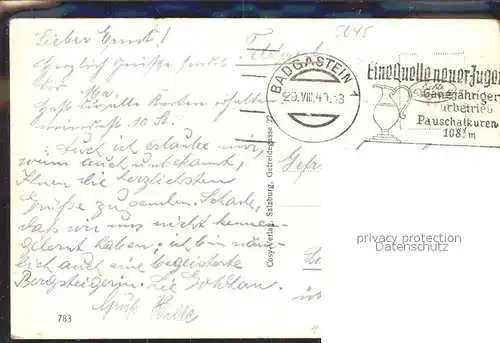 5645
Lieber Ernst!
Herzlich Grüße sendet
dir
Ma.
Hast du alle Karten erhalten
10 B.
Auch ich erlaube mir,
wenn auch unbekannt,
Ihnen die herzlichsten
Grüße zu senden. Schade,
daß wir uns nicht kennen-
gelernt haben; ich bin näm-
lich auch eine begeisterte
Bergsteigerin.
Gruß Hilde
783
Cosy-Verlag, Salzburg, Getreidegasse 22
BADGASTEIN 1
29.VIII.40.-8
Eine Quelle neuer Jugend
Ganzjähriger
Kurbetrieb
Pauschalkuren
1083m
Gefr
privacy protection
Datenschutz